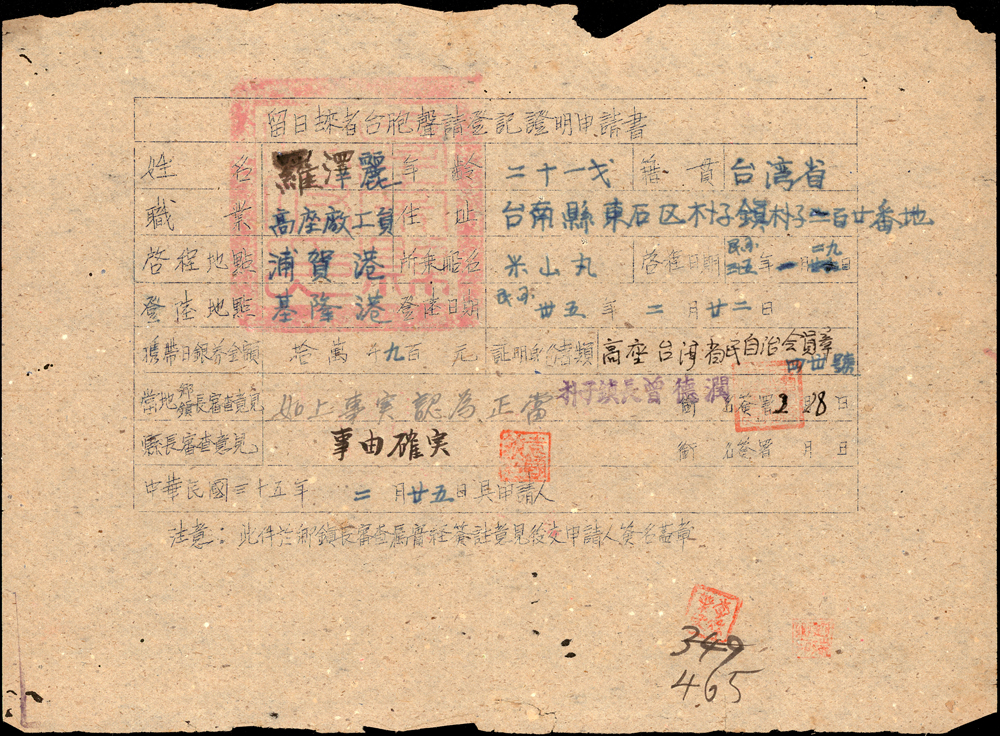 留日歸者台胞聲請登記證明申請書
姓名 羅澤麗 年齡 二十一才 籍貫 台湾省
職業 高座廠工員 住址 台南縣東石区朴子鎮朴子一百廿番地
啓程地點 浦賀港 所乘船名 米山丸 啓程日期 民国三五年一月二九日
登陸地點 基隆港 登陸日期 民国廿五年二月廿二日
攜帶日銀券金額 拾萬 九百元 證明 書類 高座台湾省民自治会員章
四廿號
當地鄉鎮長審查意見 如上事実認為正當 朴子鎮長曾德潤 銜 名簽署 2月28日
縣長審查意見 事由確実 銜 名簽署 月 日
中華民國三十五年 二月廿五日具申請人
注意：此件 鄉鎮長審查屬實 簽註意見後 申請人簽名蓋章
349
465